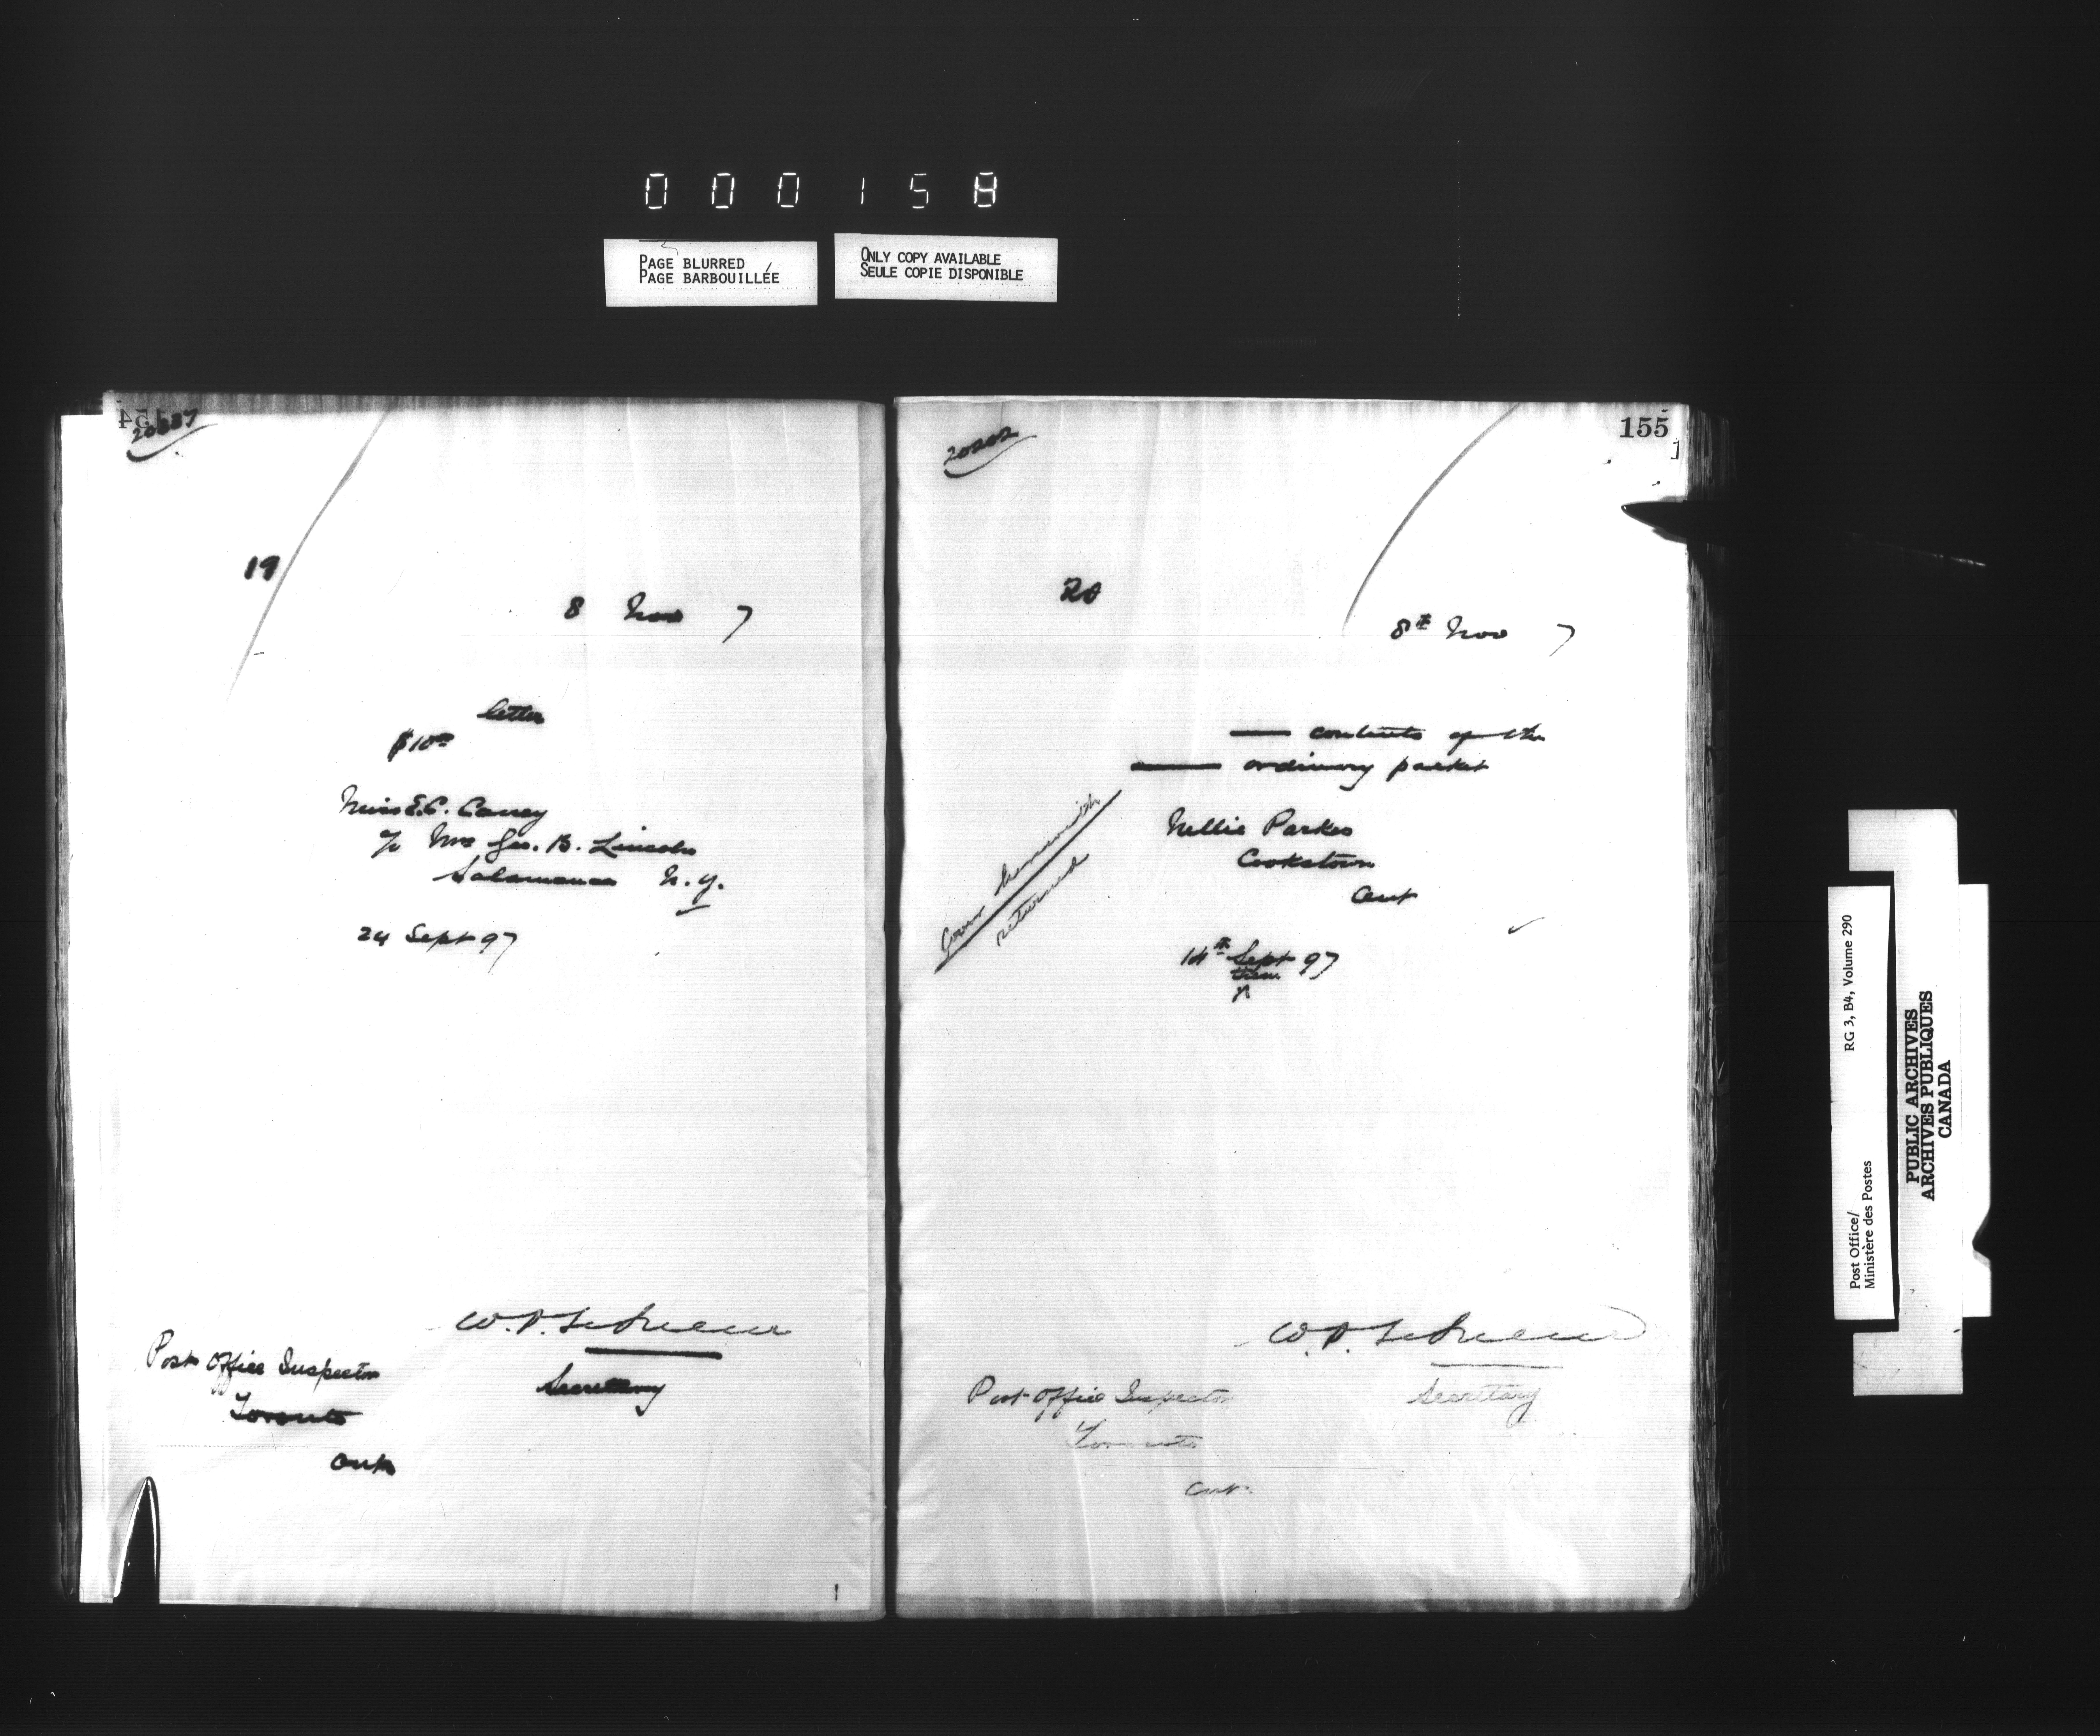 000158
PAGE BLURRED
PAGE BARBOUILLÉE
ONLY COPY AVAILABLE
SEULE COPIE DISPONIBLE
154
19
8 Nov 7
letter
$10
Miss E.C.
c/o Mrs Geo. B. Lincoln
Salamanca N.Y.
24 Sept 97
Secretary
Post Office Inspector
Toronto
Ont
155
20202
20
8th Nov 7
— contents of the
— ordinary packet
Nellie Parkes
Cookstown
Ont
herewith
returned
14th Sept 97
Secretary
Post Office Inspector
Toronto
Ont.
RG 3, B4, Volume 290
Post Office/
Ministère des Postes
PUBLIC ARCHIVES
ARCHIVES PUBLIQUES
CANADA